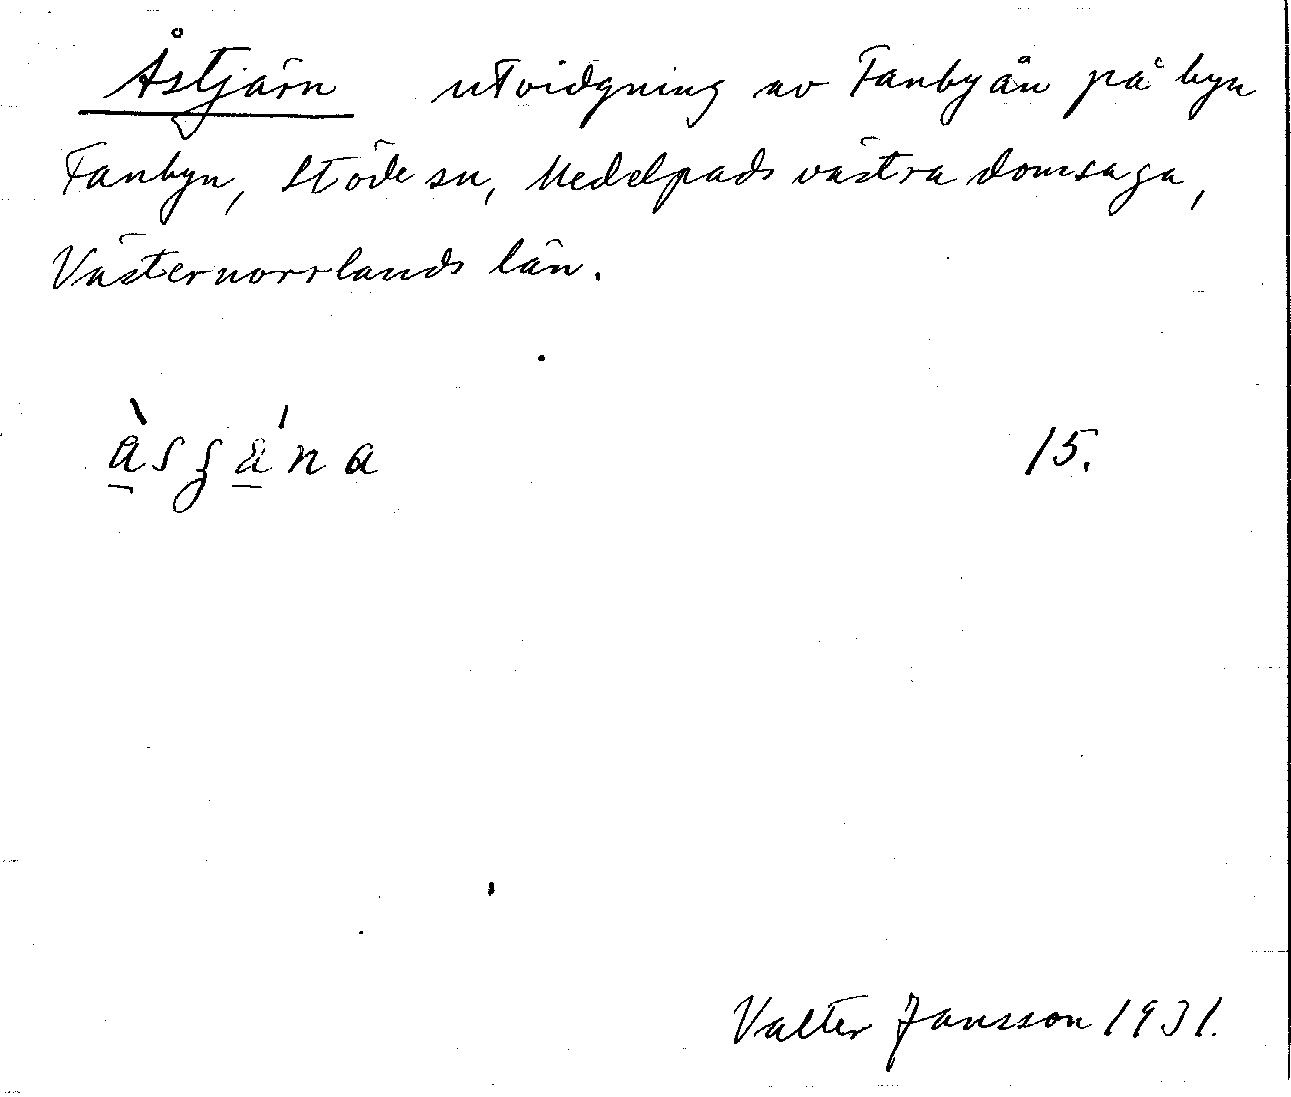 Åstjärn utvidgning av Fanbyån på byn
Fanbyn, Stöde sn, Medelpads västra domsaga,
Västernorrlands län.
15.
Valter Jansson 1931.